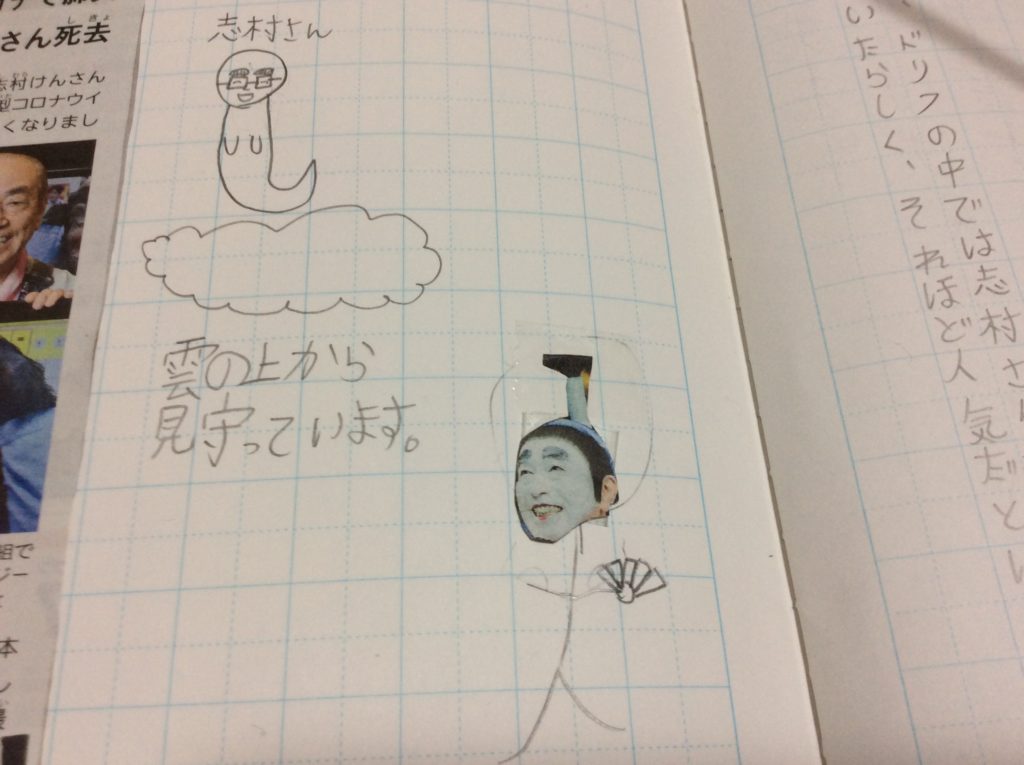 さん死去
しきょ
志村けんさん
型コロナウイ
くなりまし
組で
ジー
本
し
志村さん
雲の上から
見守っています。
、ドリフの中では志村さ
いたらしく、それほど人気だとい